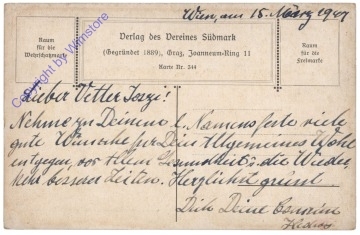 Wien, am 18. März 1947
Raum
für die
Wehrschatzmarke
Verlag des Vereines Südmark
(Gegründet 1889), Graz, Joanneum-Ring 11
Karte Nr. 244
Raum
für die
Freimarke
Copyright by Wimstore
Lieber Vetter
Nehme zu Deinem l. Namensfeste viele
gute Wünsche für Dein Allgemeines Wohl
entgegen, vor allem Gesundheit u. die Wieder
kehr besserer Zeiten. Herzlichst grüsst
Dich Deine Cousine